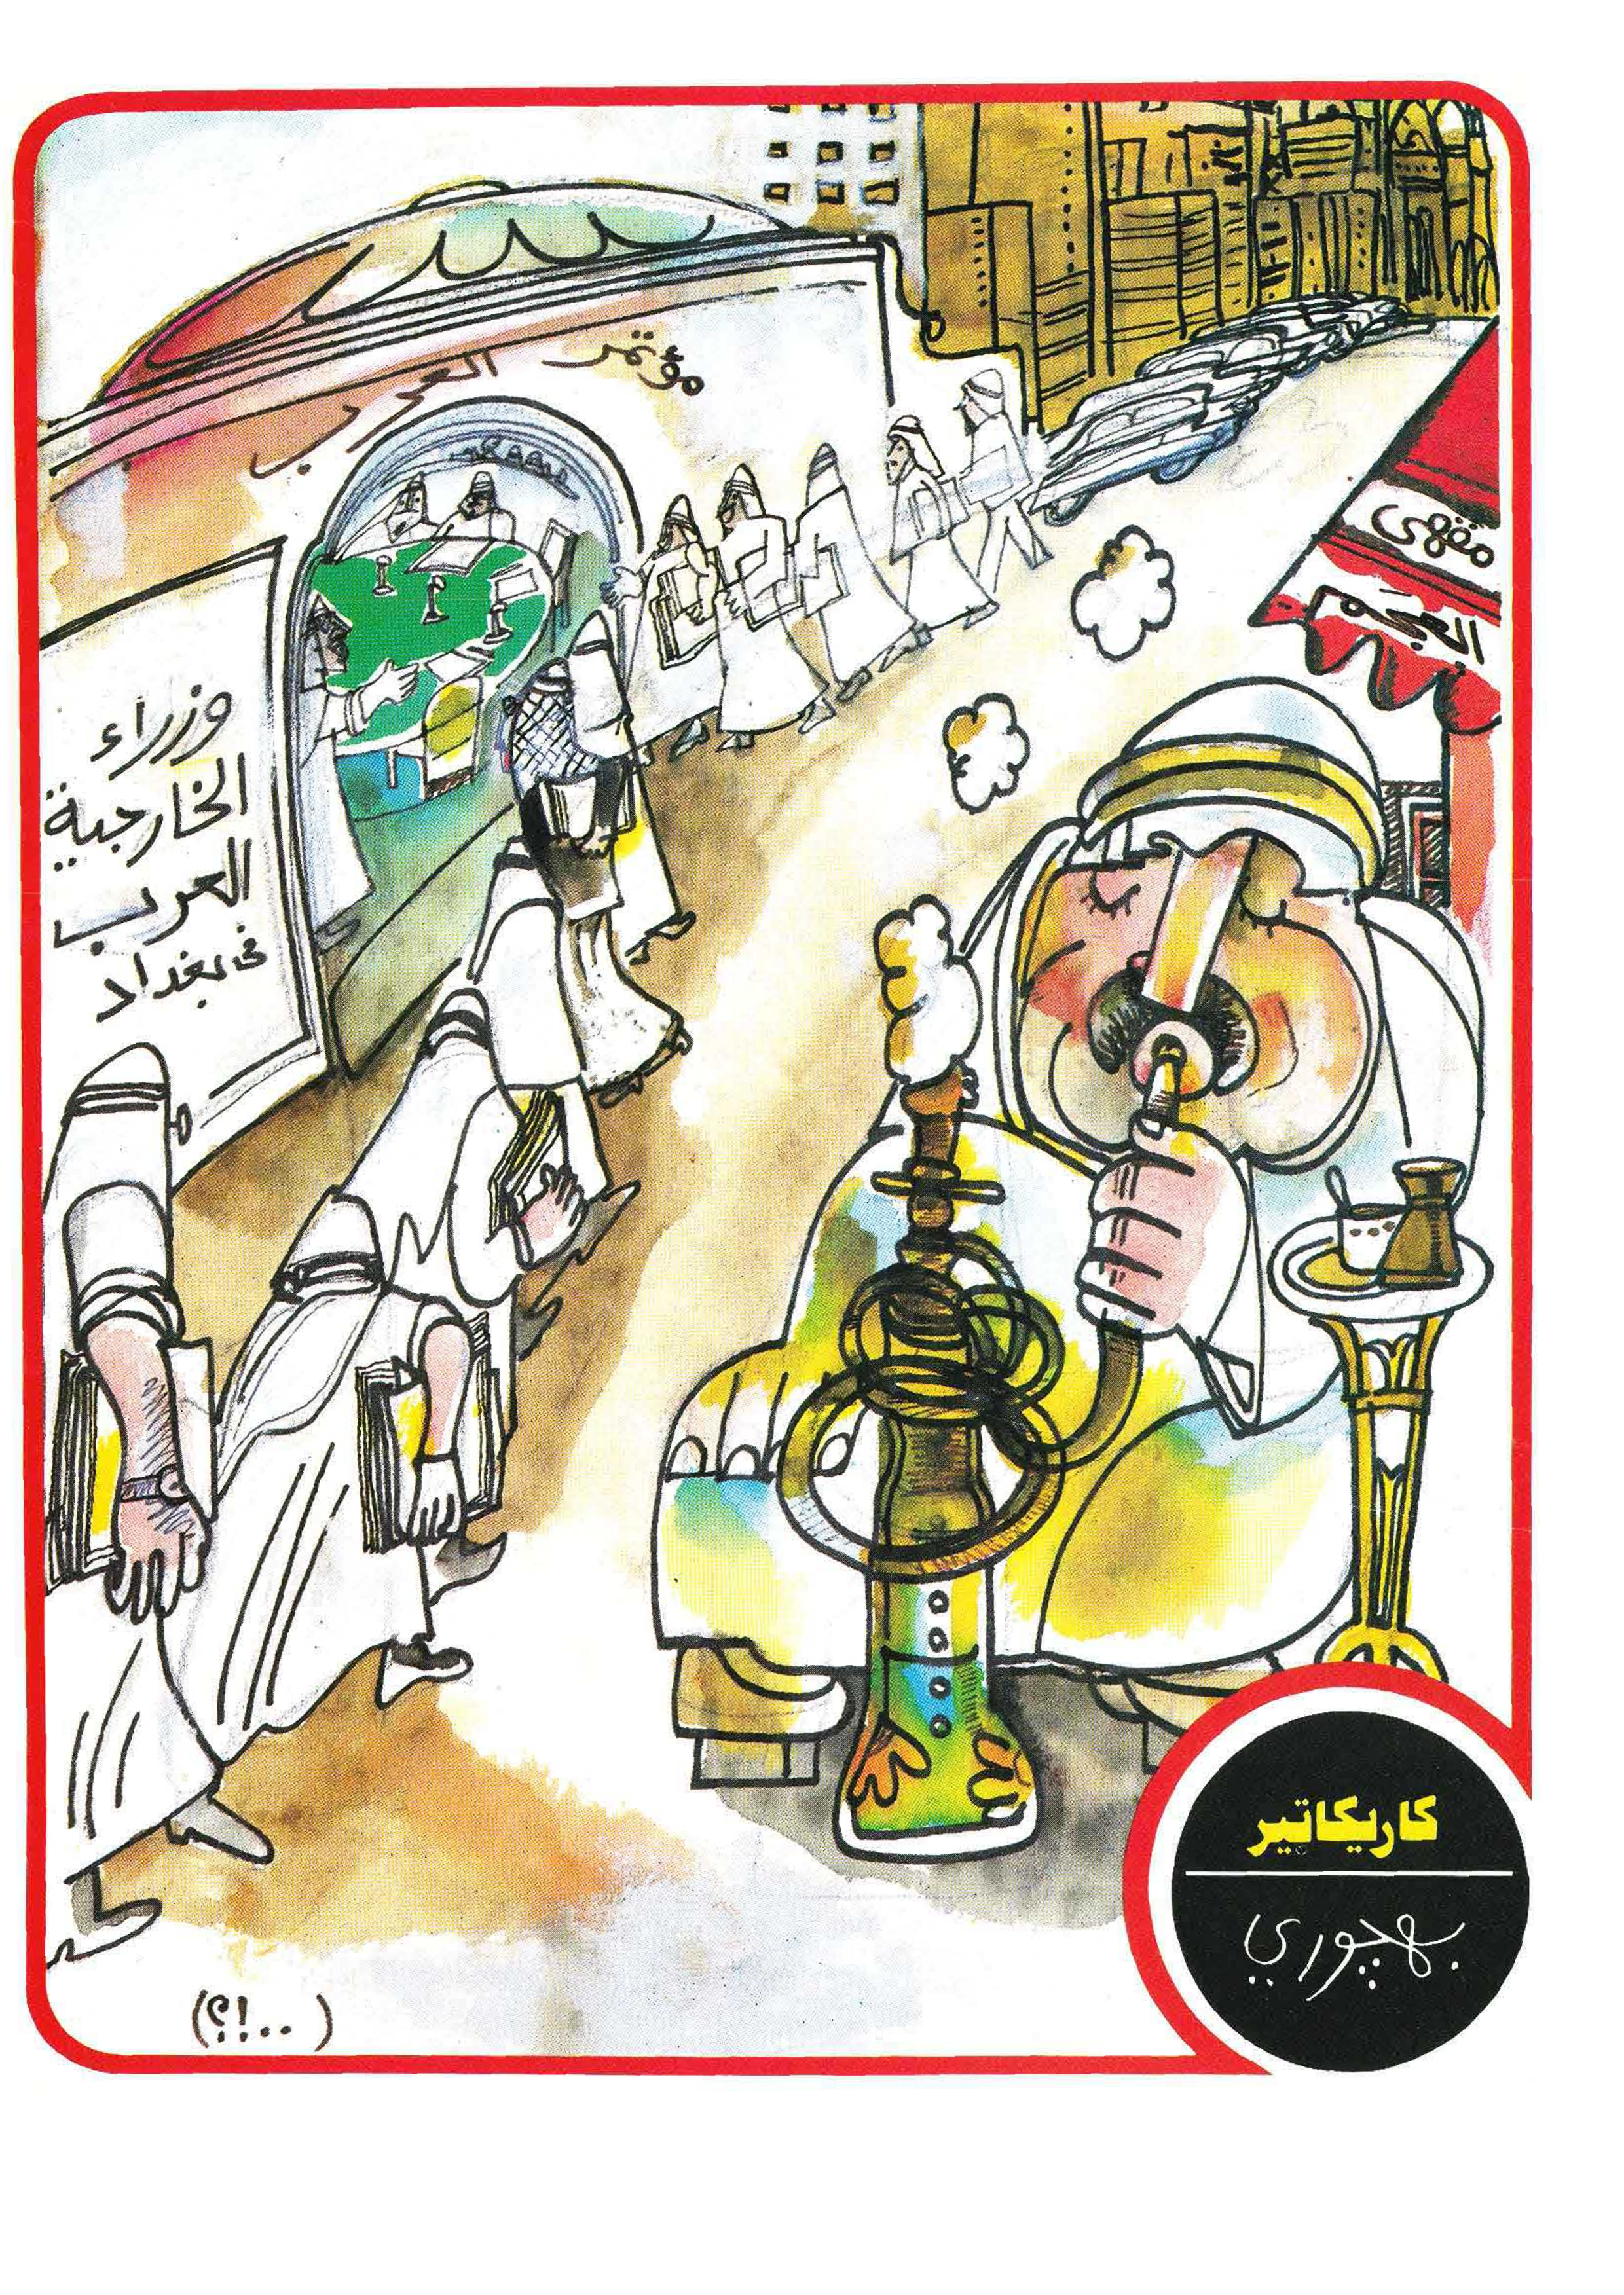 مؤتمر العرب
وزراء
الخارجية
العرب
فى بغداد
مقهى
العجم
كاريكاتير
بهچوري
(..!؟)